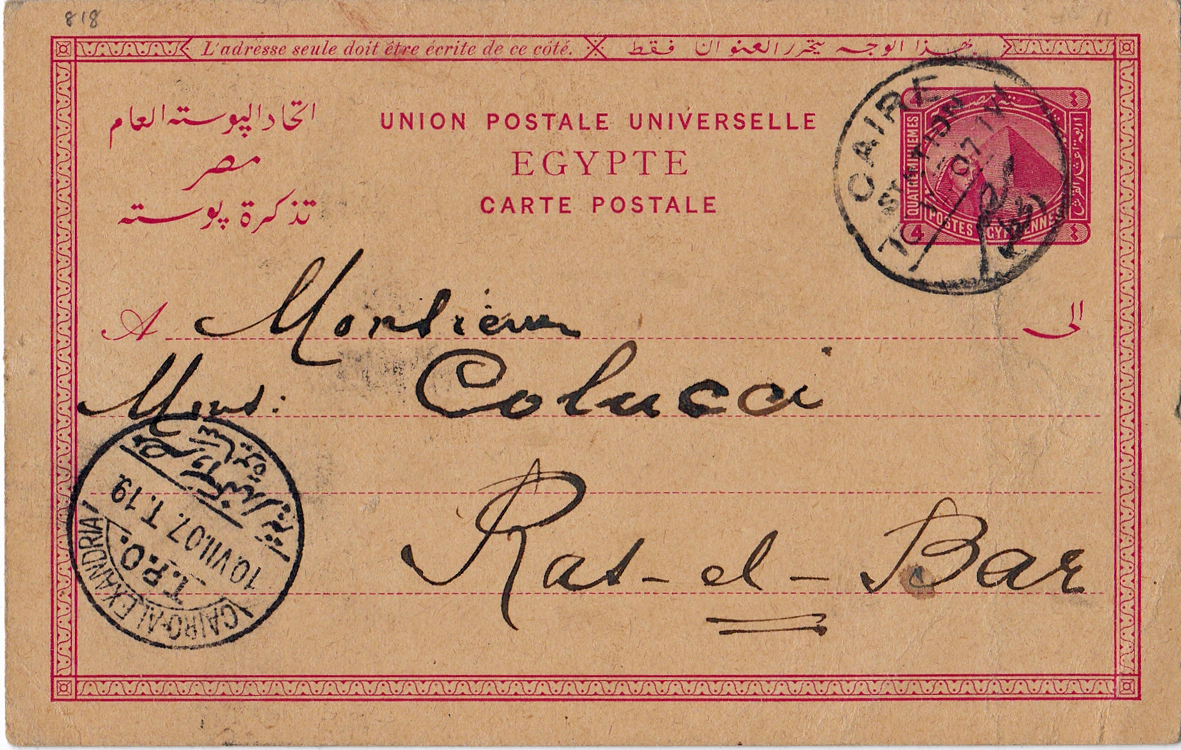 818
L'adresse seule doit être écrite de ce côté. هذا الوجه يتحرر العنوان فقط
اتحاد البوسته العام
مصر
تذكرة بوسته
UNION POSTALE UNIVERSELLE
EGYPTE
CARTE POSTALE
QUATRE MILLIEMES
POSTES EGYPTIENNES
4
CAIRE
STATION
A Monsieur الى
Mons: Colucci
Ras-el-Bar
10.VII.07.T.19.
T.P.O.
CAIRO-ALEXANDRIA